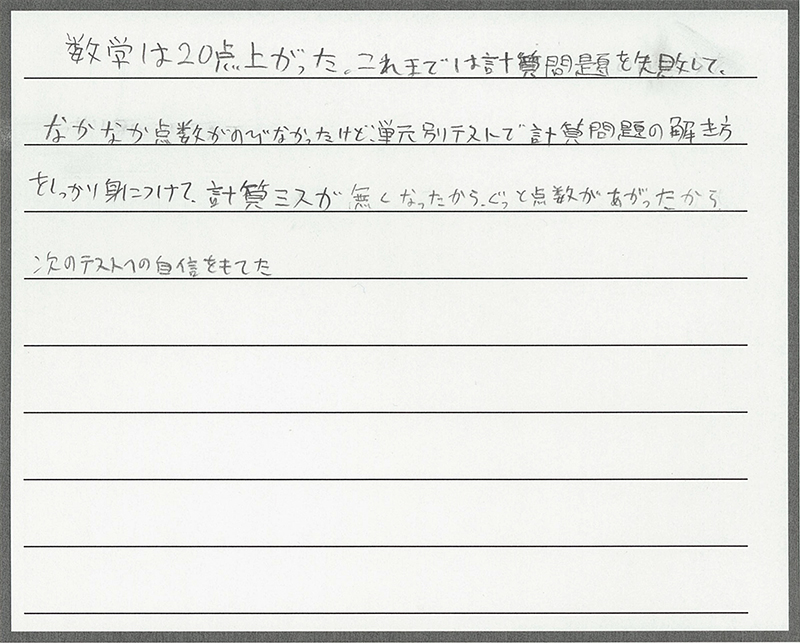 数学は20点上がった。これまでは計算問題を失敗して、
なかなか点数がのびなかったけど、単元別テストで計算問題の解き方
をしっかり身につけて、計算ミスが無くなったから、ぐっと点数があがったから
次のテストへの自信をもてた